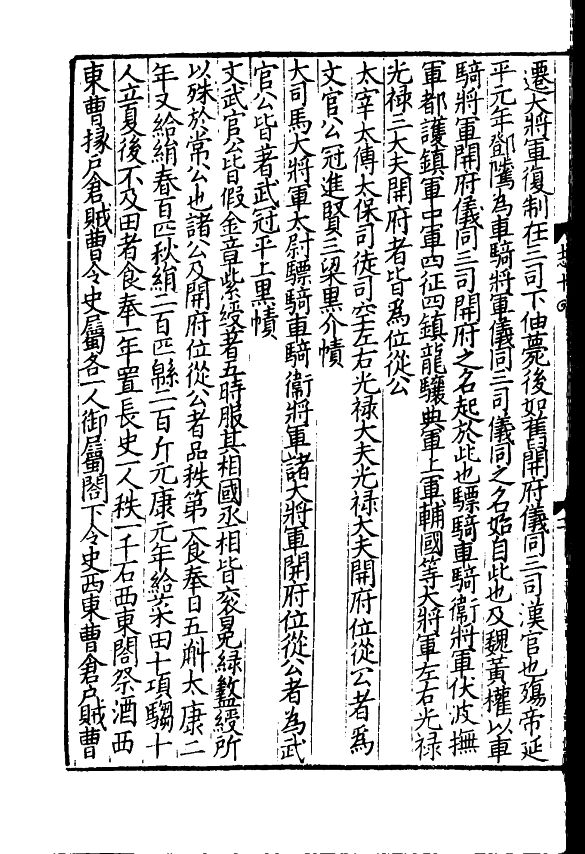 遷大將軍復制在三司下伷薨後如舊開府儀同三司漢官也殤帝延
平元年鄧騭為車騎將軍儀同三司儀同之名始自此也及魏黃權以車
騎將軍開府儀同三司開府之名起於此也驃騎車騎衞將軍伏波撫
軍都護鎮軍中軍四征四鎮龍驤典軍上軍輔國等大將軍左右光祿
光祿三大夫開府者皆為位從公
太宰太傅太保司徒司空左右光祿大夫光祿大夫開府位從公者為
文官公冠進賢三梁黑介幘
大司馬大將軍太尉驃騎車騎衞將軍諸大將軍開府位從公者為武
官公皆著武冠平上黑幘
文武官公皆假金章紫綬著五時服其相國丞相皆衮冕綠盭綬所
以殊於常公也諸公及開府位從公者品秩第一食奉日五斛太康二
年又給絹春百匹秋絹二百匹緜二百斤元康元年給菜田十頃騶十
人立夏後不及田者食奉一年置長史一人秩一千石西東閤祭酒西
東曹掾戶倉賊曹令史屬各一人御屬閤下令史西東曹倉戶賊曹
志十四